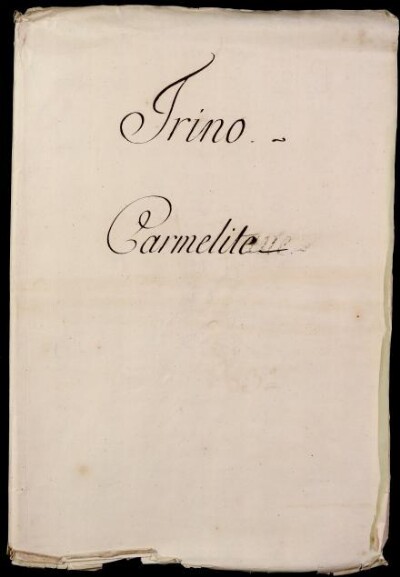 Trino. ~
Carmelitane